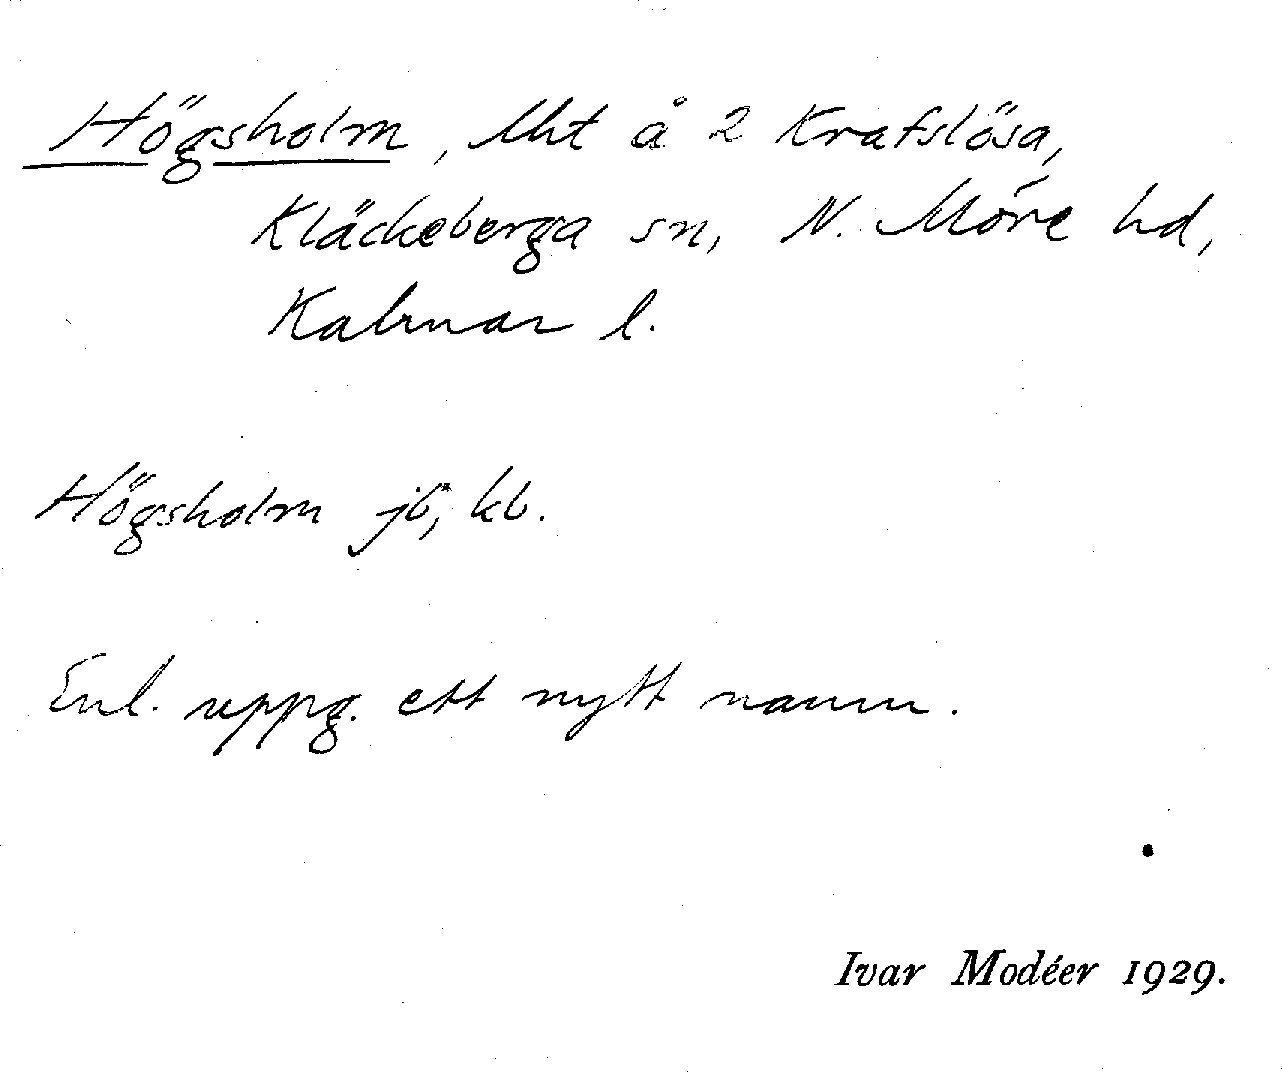 Högsholm, lht å 2 Krafslösa,
Kläckeberga sn, N. Möre hd,
Kalmar l.
Högsholm jb, kb.
Enl. uppg. ett nytt namn.
Ivar Modéer 1929.